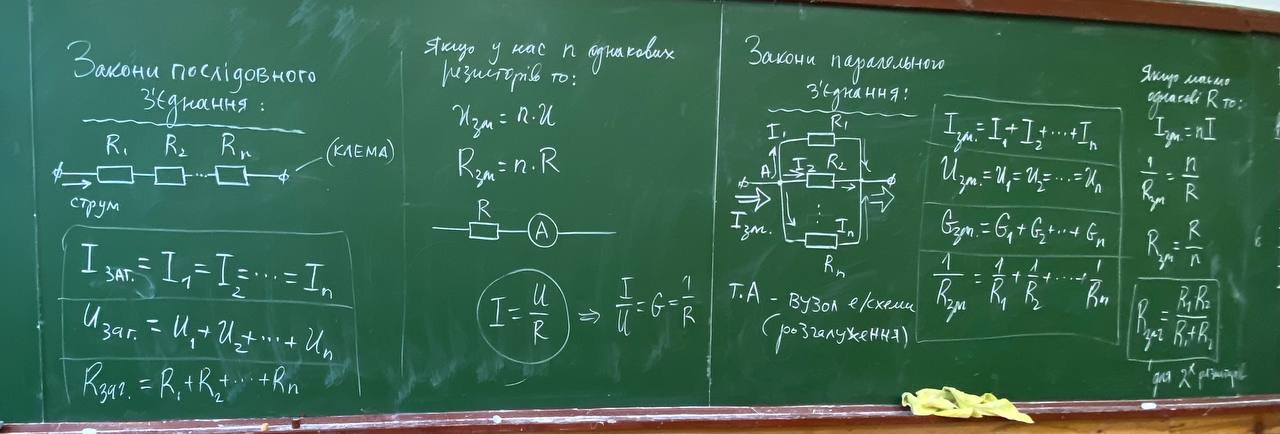 Закони послідовного
з'єднання:
R₁ R₂ Rₙ
(КЛЕМА)
струм
I заг. = I₁ = I₂ = ... = Iₙ
U заг. = U₁ + U₂ + ... + Uₙ
R заг. = R₁ + R₂ + ... + Rₙ
Якщо у нас n однакових
резисторів то:
Uзм = n·U
Rзм = n·R
R A
I = U/R ⇒ I/U = G = 1/R
Закони паралельного
з'єднання:
I₁ R₁
A I₂ R₂
Iзм. Iₙ
Rₙ
т.А - вузол е/схеми
(розгалуження)
Iзм. = I₁ + I₂ + ... + Iₙ
Uзм. = U₁ = U₂ = ... = Uₙ
Gзм. = G₁ + G₂ + ... + Gₙ
1/Rзм = 1/R₁ + 1/R₂ + ... + 1/Rₙ
Якщо маємо
однакові R то:
Iзм = nI
1/Rзм = n/R
Rзм = R/n
Rзаг = R₁R₂/R₁+R₂
для 2ˣ резисторів